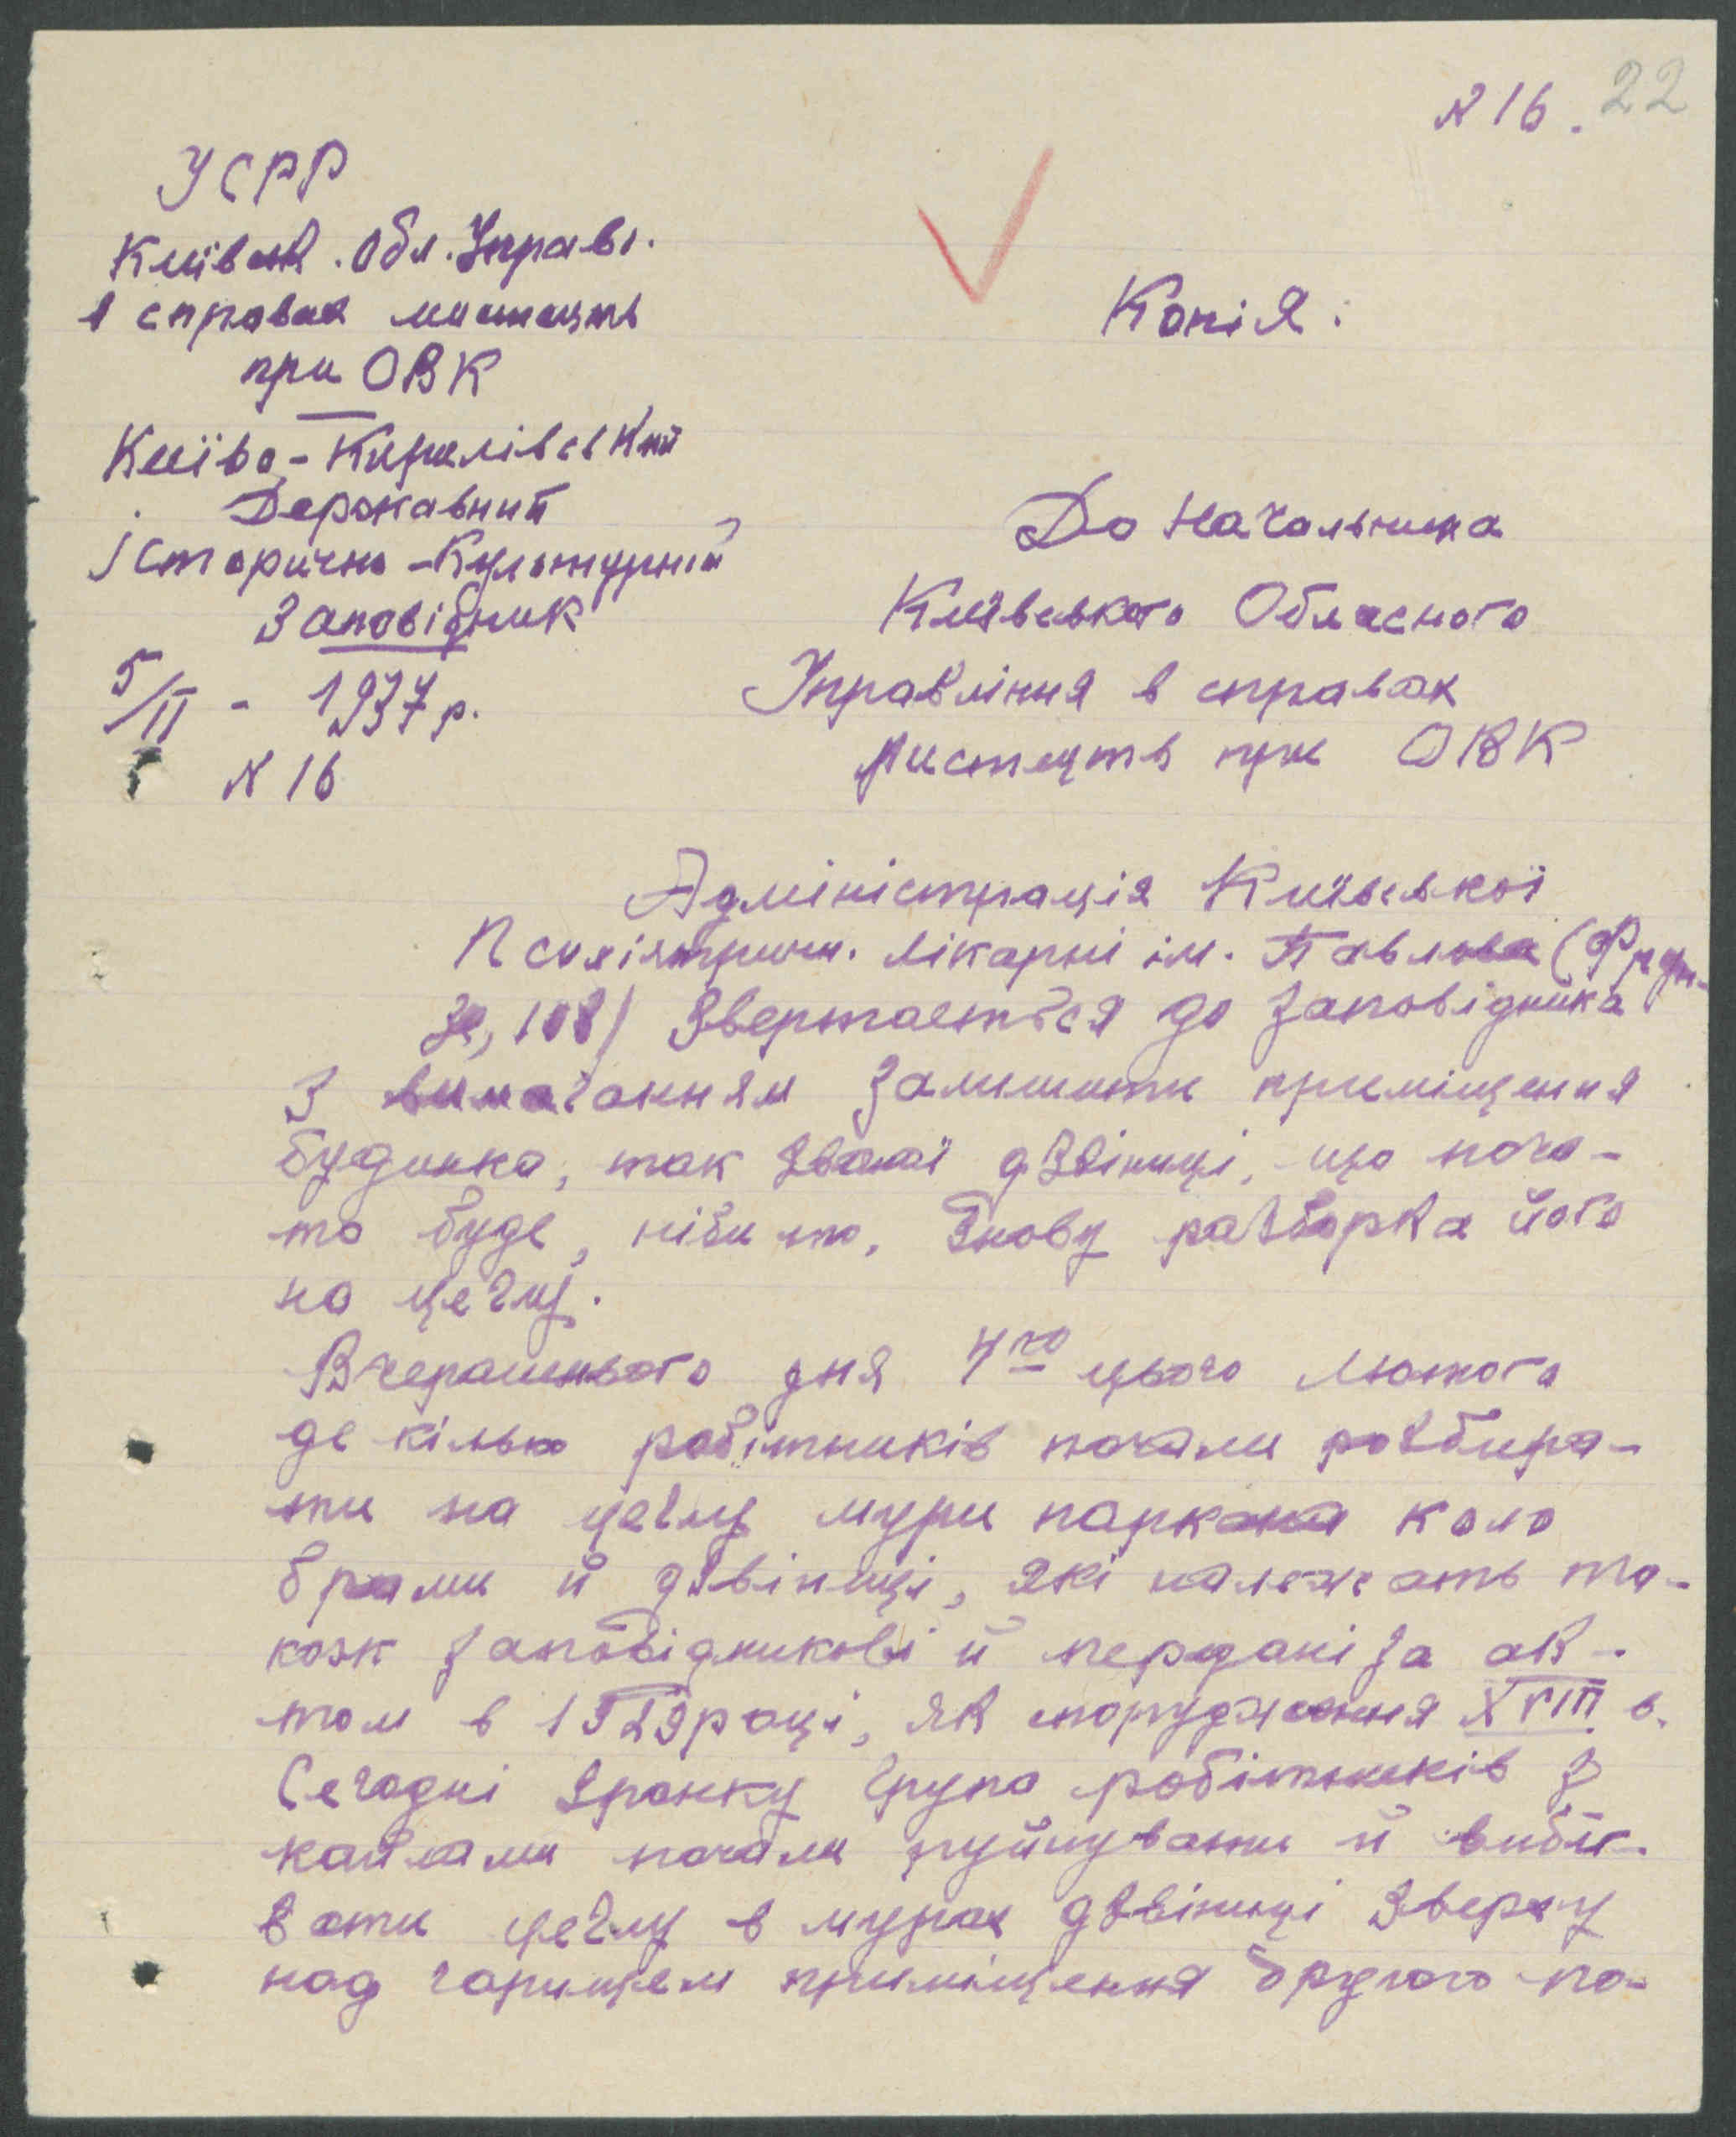 N 16. 22
УСРР
Київськ. Обл. Управл.
в справах мистецтв
при ОВК
Копія.
Києво-Кирилівський
Державний
Історично-Культурний
Заповідник
5/II - 1937 р.
N 16
До Начальника
Київського Обласного
Управління в справах
Мистецтв при ОВК
Адміністрація Київської
Психіятричн. лікарні ім. Павлова (Фрун-
зе, 108) звертається до Заповідника
з вимаганням залишити приміщення
будинка, так званої дзвіниці, що поча-
то буде, ніби то, знову разборка його
на цеглу.
Вчерашнього дня 4го цього Лютого
де кілько робітників почали розбира-
ти на цеглу мури паркана коло
брами й дзвіниці, які належать та-
кож Заповідникові й передані за ак-
том в 1929 році, як спорудження XVIII в.
Сегодні зранку група робітників з
кайлами почали руйнувати й вибі-
вати цеглу в мурах дзвіниці зверху
над горищем приміщення другого по-